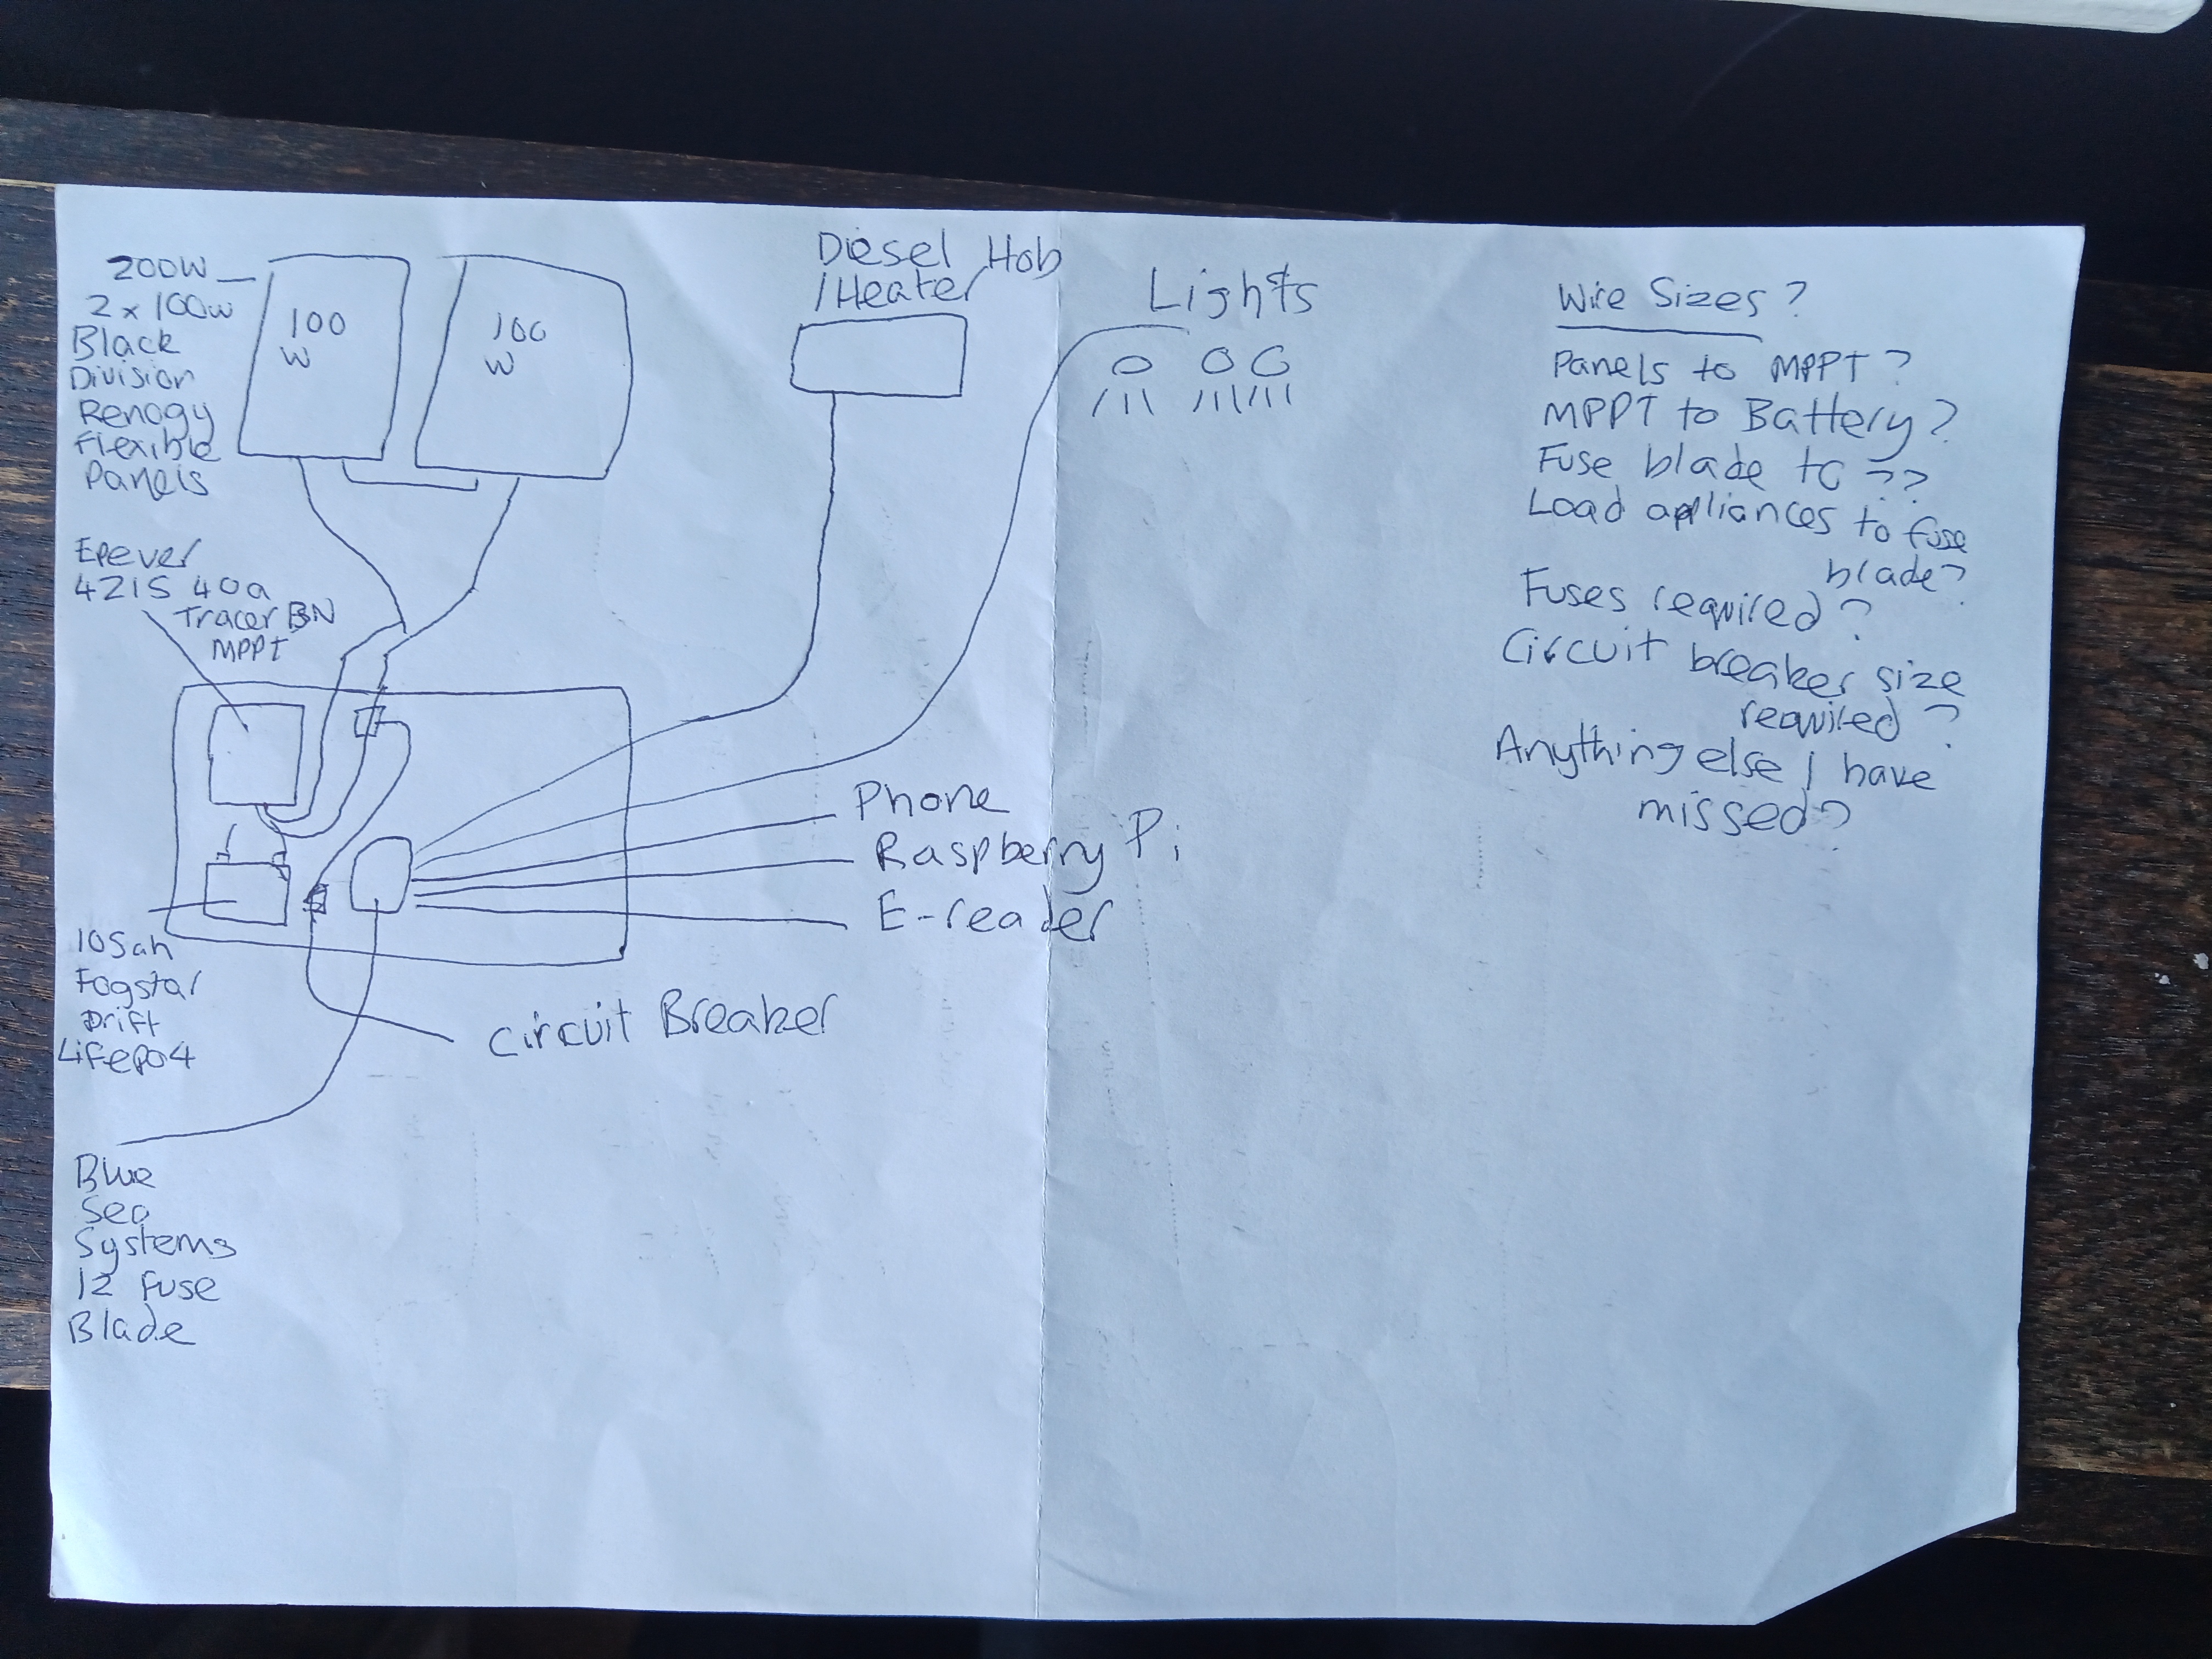 200W
2 x 100w
Black
Division
Renogy
Flexible
Panels
100
W
100
W
Epever
4215 40a
Tracer BN
MPPT
105ah
Fogstar
Drift
Lifepo4
Blue
Sea
Systems
12 fuse
Blade
Circuit Breaker
Diesel Hob
/Heater
Lights
Phone
Raspberry Pi
E-reader
Wire Sizes?
Panels to MPPT?
MPPT to Battery?
Fuse blade to ??
Load appliances to fuse
blade?
Fuses required?
Circuit breaker size
required?
Anything else I have
missed?